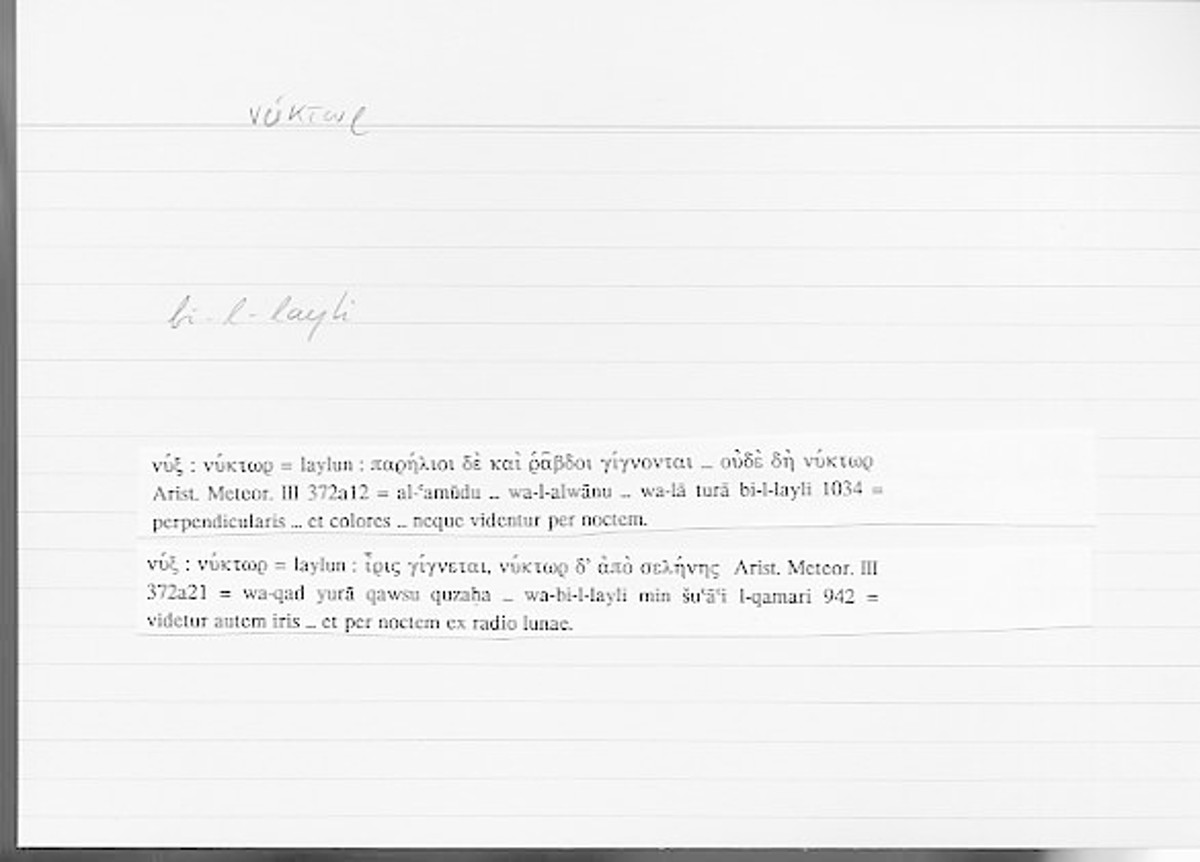 νύκτωρ
bi-l-layli
νύξ : νύκτωρ = laylun : παρήλιοι δὲ καὶ ῥάβδοι γίγνονται ... οὐδὲ δὴ νύκτωρ
Arist. Meteor. III 372a12 = al-ʿamūdu ... wa-l-alwānu ... wa-lā turā bi-l-layli 1034 =
perpendicularis ... et colores ... neque videntur per noctem.
νύξ : νύκτωρ = laylun : ἶρις γίγνεται, νύκτωρ δ’ ἀπὸ σελήνης Arist. Meteor. III
372a21 = wa-qad yurā qawsu quzaḥa ... wa-bi-l-layli min šuʿāʿi l-qamari 942 =
videtur autem iris ... et per noctem ex radio lunae.